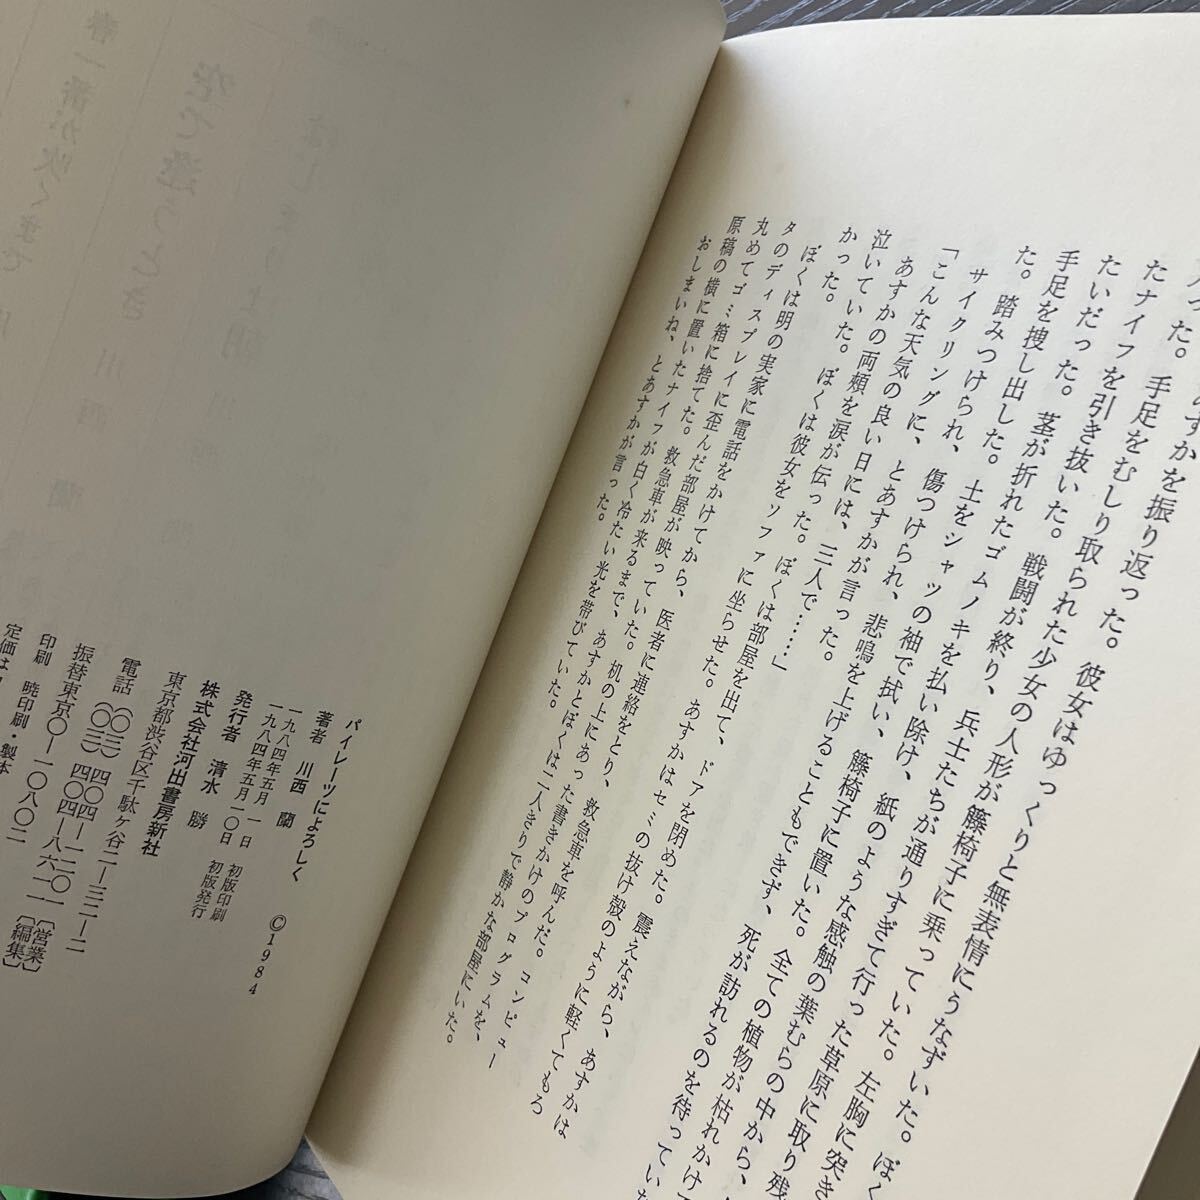 た。手足をむしり取られた少女の人形が籐椅子に乗っていた。左胸に突き
たナイフを引き抜いた。戦闘が終り、兵士たちが通りすぎて行った草原に取り残
たいだった。茎が折れたゴムノキを払い除け、紙のような感触の葉むらの中から、
手足を捜し出した。土をシャツの袖で拭い、籐椅子に置いた。全ての植物が枯れかけて
た。踏みつけられ、傷つけられ、悲鳴を上げることもできず、死が訪れるのを待ってい
サイクリングに、とあすかが言った。
「こんな天気の良い日には、三人で……」
あすかの両頬を涙が伝った。ぼくは部屋を出て、ドアを閉めた。震えながら、あすかは
泣いていた。ぼくは彼女をソファに坐らせた。あすかはセミの抜け殻のように軽くてもろ
かった。
ぼくは明の実家に電話をかけてから、医者に連絡をとり、救急車を呼んだ。コンピュー
タのディスプレイに歪んだ部屋が映っていた。机の上にあった書きかけのプログラムを、
丸めてゴミ箱に捨てた。救急車が来るまで、あすかとぼくは二人きりで静かな部屋にいた。
原稿の横に置いたナイフが白く冷たい光を帯びていた。
おしまいね、とあすかが言った。
パイレーツによろしく
©1984
著者 川西 蘭
一九八四年五月 一 日 初版印刷
一九八四年五月一〇日 初版発行
発行者 清水 勝
株式会社河出書房新社
東京都渋谷区千駄ヶ谷二―三二―二
電話 (〇三)四〇四―一二〇一〔営業〕
(〇三)四〇四―八六一一〔編集〕
振替東京〇―一〇八〇二
印刷 暁印刷・製本
定価は